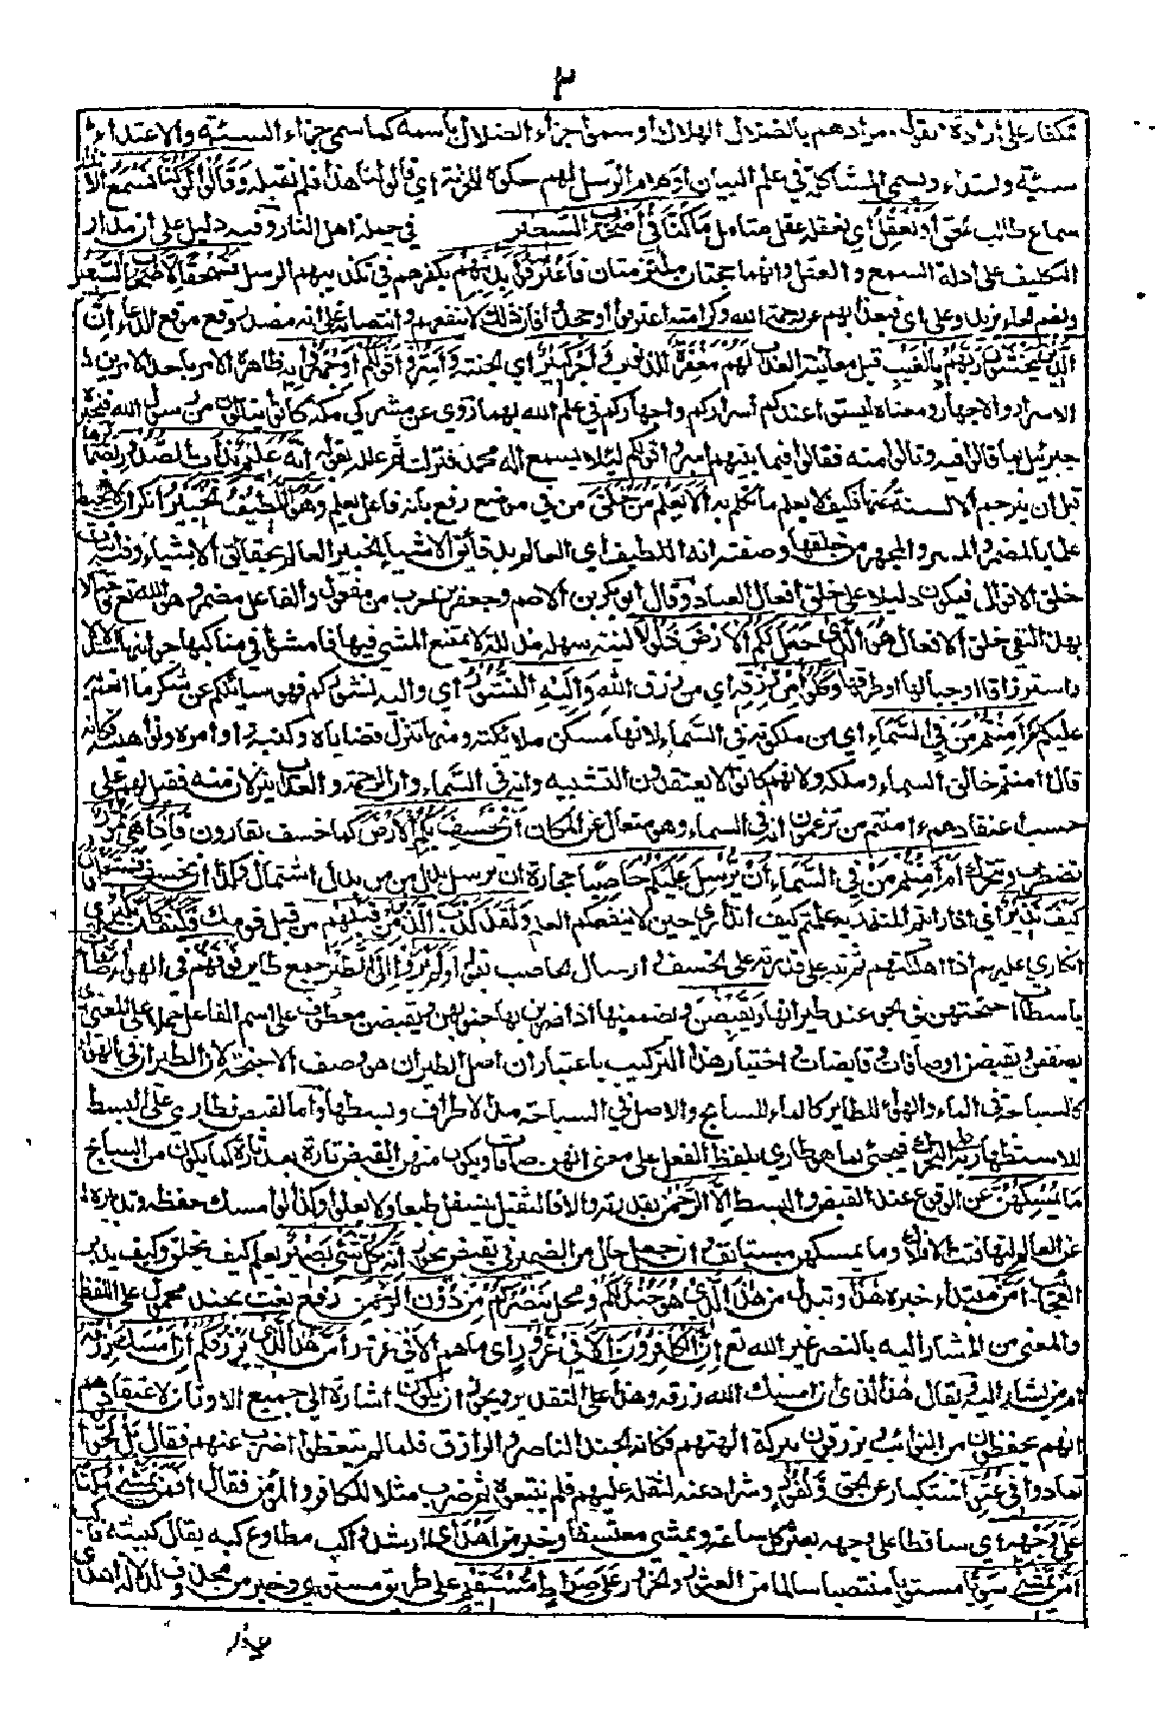 ٢
على ارادة القول ومرادهم بالضلال الهلاك او سمى جزاء الضلال باسمه كما سمى جزاء السيئة والاعتداء
سيئة واعتداء ويسمى المشاكلة في علم البيان او كلام الرسل لهم حكوه للخزنة اى قالوا لنا هذا فلم نقبله وَقَالُوا لَوْ كُنَّا نَسْمَعُ الانذار
سماع طالب الحق أَوْ نَعْقِلُ اى نعقله عقل متأمل مَا كُنَّا فِي أَصْحَابِ السَّعِيرِ في جملة اهل النار وفيه دليل على ان مدار
التكليف على ادلة السمع والعقل وانهما حجتان ملزمتان فَاعْتَرَفُوا بِذَنبِهِمْ بكفرهم في تكذيبهم الرسل فَسُحْقًا لِأَصْحَابِ السَّعِيرِ
وبضم الحاء يزيد وعلى اى فبعدا لهم عن رحمة الله وكرامته اعترفوا او جحدوا فان ذلك لا ينفعهم وانتصابه على انه مصدر وقع موقع الدعاء إِنَّ
الَّذِينَ يَخْشَوْنَ رَبَّهُم بِالْغَيْبِ قبل معاينة العذاب لَهُم مَّغْفِرَةٌ للذنوب وَأَجْرٌ كَبِيرٌ اى الجنة وَأَسِرُّوا قَوْلَكُمْ أَوِ اجْهَرُوا بِهِ ظاهره الامر باحد الامرين
الاسرار والاجهار ومعناه ليستو عندكم اسراركم واجهاركم في علم الله بهما روى عن مشركى مكة كانوا ينالون من رسول الله فيخبره
جبرئيل بما قالوا فيه ونالوا منه فقالوا فيما بينهم اسروا قولكم لئلا يسمع اله محمد فنزلت ثم علله بقوله إِنَّهُ عَلِيمٌ بِذَاتِ الصُّدُورِ بضمائرها
قبل ان يترجم الالسنة عنها فكيف لا يعلم ما تكلم به أَلَا يَعْلَمُ مَنْ خَلَقَ من في موضع رفع بانه فاعل يعلم وَهُوَ اللَّطِيفُ الْخَبِيرُ انكر ان لا يحيط
علما بالمضمر والمسر والمجهر من خلقها وصفته انه اللطيف اى العالم بدقائق الاشياء الخبير العالم بحقائق الاشياء وفيه اثبات
خلق الاقوال فيكون دليلا على خلق افعال العباد وقال ابو بكر بن الاصم وجعفر بن حرب من مفعول والفاعل مضمر وهو الله تع فاحتالا
بهذا لنفى خلق الافعال هُوَ الَّذِي جَعَلَ لَكُمُ الْأَرْضَ ذَلُولًا لينة سهلة مذللة لا تمنع المشى فيها فَامْشُوا فِي مَنَاكِبِهَا جوانبها استدلالا
واسترزاقا او جبالها او طرقها وَكُلُوا مِن رِّزْقِهِ اى من رزق الله وَإِلَيْهِ النُّشُورُ اى واليه نشوركم فهو سائلكم عن شكر ما انعم به
عليكم أَأَمِنتُم مَّن فِي السَّمَاءِ اى من ملكوته في السماء لانها مسكن ملائكته ومنها تنزل قضاياه وكتبه واوامره ونواهيه فكانه
قال أامنتم خالق السماء وملكه ولانهم كانوا يعتقدون التشبيه وانه في السماء وان الرحمة والعذاب ينزلان منه فقيل لهم على
حسب اعتقادهم ءامنتم من تزعمون انه في السماء وهو متعال عن المكان أَن يَخْسِفَ بِكُمُ الْأَرْضَ كما خسف بقارون فَإِذَا هِيَ تَمُورُ
تضطرب وتتحرك أَمْ أَمِنتُم مَّن فِي السَّمَاءِ أَن يُرْسِلَ عَلَيْكُمْ حَاصِبًا حجارة ان يرسل بدل من من بدل اشتمال وكذا ان يخسف فَسَتَعْلَمُونَ
كَيْفَ نَذِيرِ اى اذا رايتم المنذر به علمتم كيف انذارى حين لا ينفعكم العلم وَلَقَدْ كَذَّبَ الَّذِينَ مِن قَبْلِهِمْ من قبل قومك فَكَيْفَ كَانَ نَكِيرِ اى
انكارى عليهم اذا اهلكتهم ثم نبه على قدرته على الخسف وارسال الحاصب بقوله أَوَلَمْ يَرَوْا إِلَى الطَّيْرِ جمع طاير فَوْقَهُمْ في الهواء صَافَّاتٍ
باسطات اجنحتهن في الجو عند طيرانها وَيَقْبِضْنَ ويضممنها اذا ضربن بها جنوبهن ويقبضن معطوف على اسم الفاعل حملا على المعنى اى
يصففن ويقبضن او صافات وقابضات واختيار هذا التركيب باعتبار ان اصل الطيران هو صف الاجنحة لان الطيران في الهواء
كالسباحة في الماء والهواء للطاير كالماء للسابح والاصل في السباحة مد الاطراف وبسطها واما القبض فطارى على البسط
للاستظهار به على التحرك فجئ بما هو طارى بلفظ الفعل على معنى انهن صافات ويكون منهن القبض تارة بعد تارة كما يكون من السابح
مَا يُمْسِكُهُنَّ عن الوقوع عند القبض والبسط إِلَّا الرَّحْمَنُ بقدرته والا فالثقيل يتسفل طبعا ولا يعلو وكذا لو امسك حفظه وتدبيره
عن العالم لتهافتت الافلاك وما يمسكهن مستانف وان جعل حال من الضمير في يقبضن يجوز إِنَّهُ بِكُلِّ شَيْءٍ بَصِيرٌ يعلم كيف يخلق وكيف يدبر
العجايب أَمَّنْ مبتدأ خبره هَذَا وتبدل من هذا الَّذِي هُوَ جُندٌ لَّكُمْ ومحل يَنصُرُكُم مِّن دُونِ الرَّحْمَنِ رفع نعت لجند محمول على اللفظ
والمعنى من المشار اليه بالنصر غير الله تع إِنِ الْكَافِرُونَ إِلَّا فِي غُرُورٍ اى ما هم الا في غرور أَمَّنْ هَذَا الَّذِي يَرْزُقُكُمْ إِنْ أَمْسَكَ رِزْقَهُ
ام من يشار اليه ويقال هذا الذى ان امسك الله رزقه وهذا على التقدير ويجوز ان يكون اشارة الى جميع الاوثان لاعتقادهم
انهم يحفظون من النوائب ويرزقون ببركة الهتهم فكانه الجند الناصر والرازق فلما لم يتعظوا اضرب عنهم فقال بَل لَّجُّوا
تمادوا فِي عُتُوٍّ استكبار عن الحق وَنُفُورٍ وشراد عنه لثقله عليهم فلم يتبعوه ثم ضرب مثلا للكافر والمؤمن فقال أَفَمَن يَمْشِي مُكِبًّا
عَلَى وَجْهِهِ اى ساقطا على وجهه يعثر كل ساعة ويمشى معتسفا وخبر من أَهْدَى ارشد واكب مطاوع كبه يقال كببته فاكب
أَمَّن يَمْشِي سَوِيًّا مستويا منتصبا سالما من العثور والخرور عَلَى صِرَاطٍ مُّسْتَقِيمٍ على طريق مستوى وخبر من محذوف لدلالة اهدى